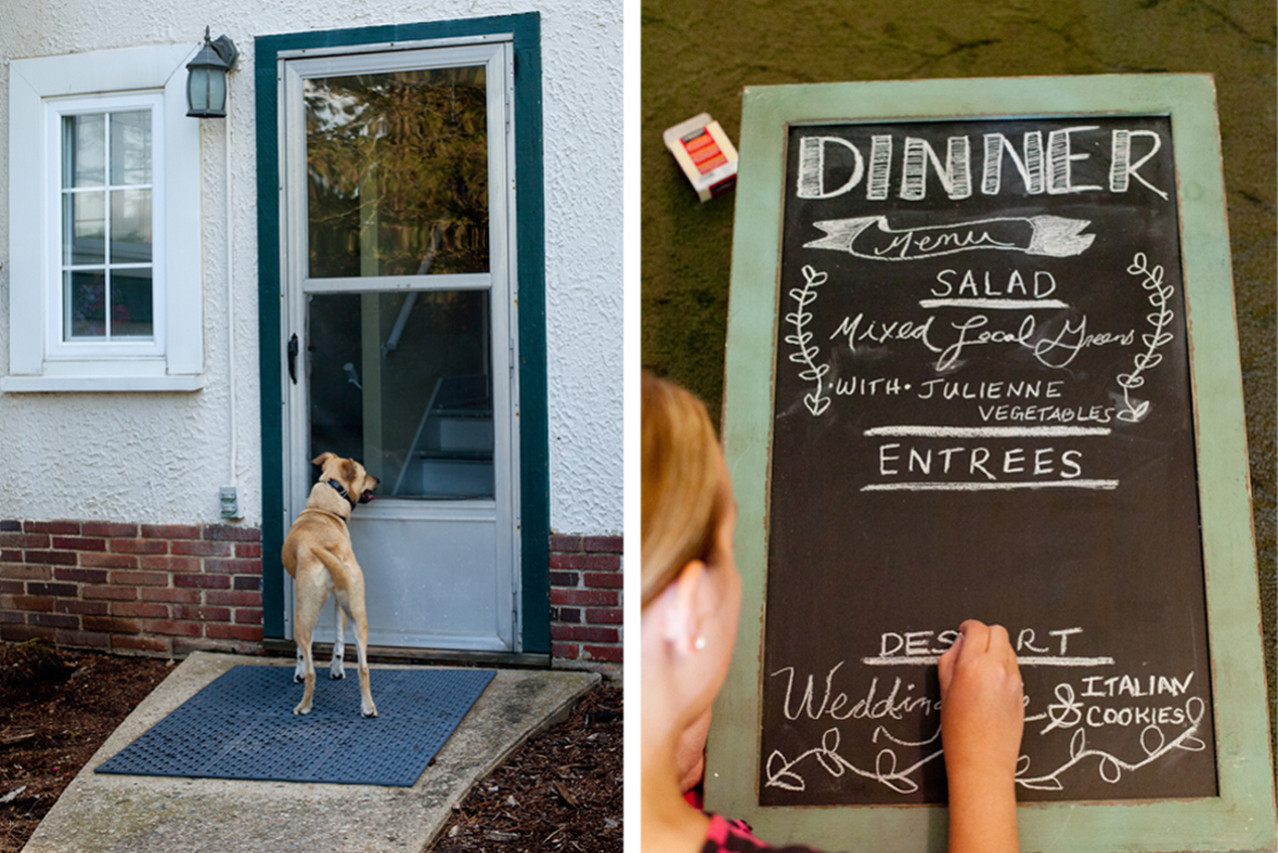 DINNER
Menu
SALAD
Mixed Local Greens
·WITH· JULIENNE
VEGETABLES
ENTREES
Wedding
& ITALIAN
COOKIES